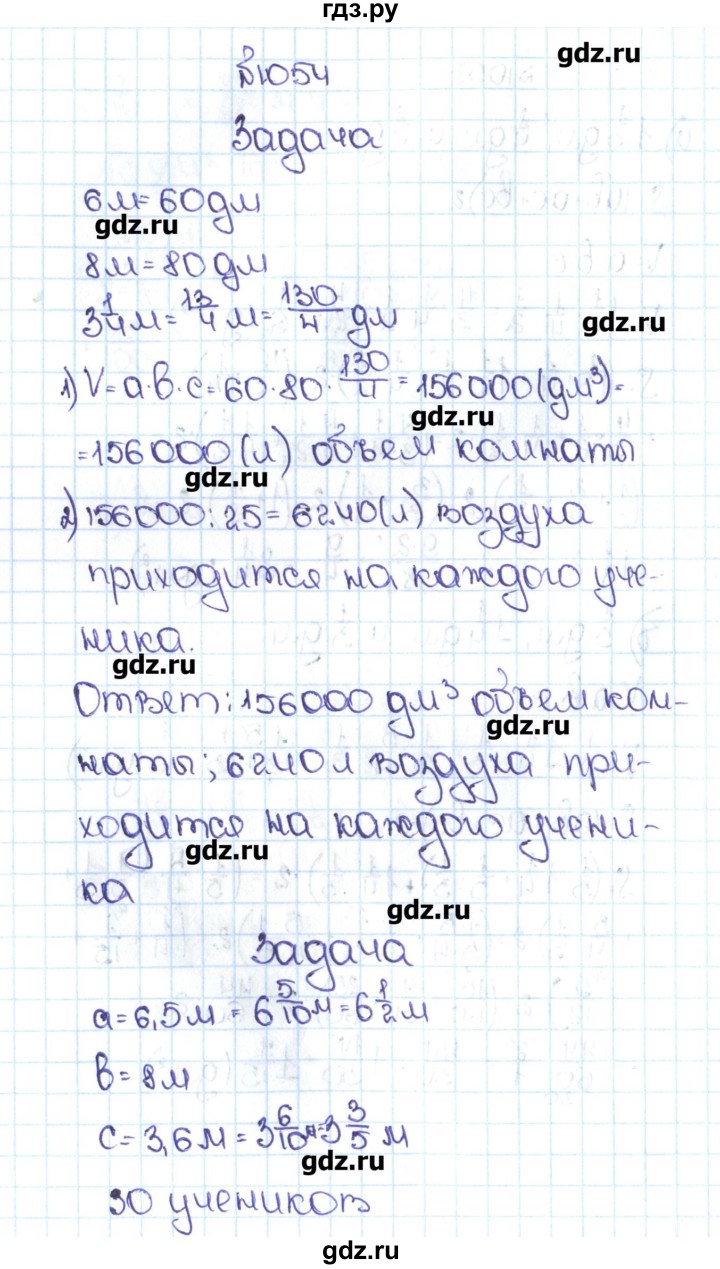 гдз.ру
gdz.ru
№1054
Задача
6м=60дм
gdz.ru
8м=80дм
3 1/4 м = 13/4 м = 130/4 дм
gdz.ru
1) V=a·b·c=60·80·130/4=156000(дм³)=
gdz.ru
=156000(л) объем комнаты
gdz.ru
2) 156000:25=6240(л) воздуха
приходится на каждого уче-
ника.
gdz.ru
Ответ: 156000 дм³ объем ком-
gdz.ru
наты; 6240л воздуха при-
ходится на каждого учени-
gdz.ru
ка
gdz.ru
Задача
a=6,5м = 6 5/10 м = 6 1/2 м
gdz.ru
b=8м
c=3,6м = 3 6/10 м = 3 3/5 м
gdz.ru
30 учеников
gdz.ru